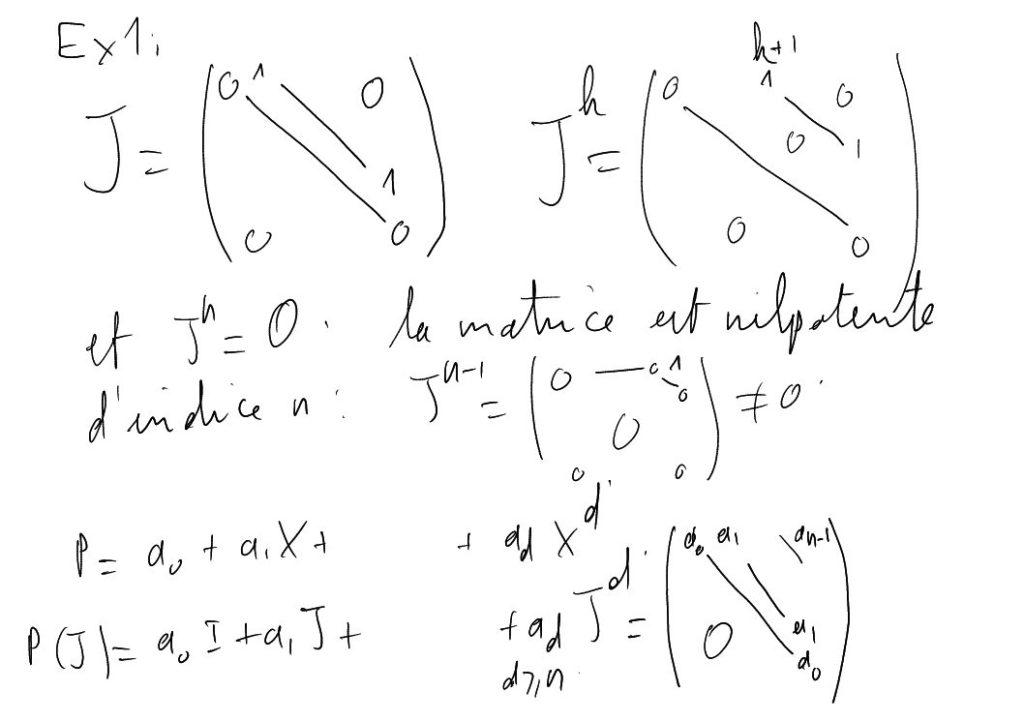 Ex1.
J = (0 1 0 1 0 0) J^k = (0 k+1 1 0 0 1 0 0)
et J^n = 0. la matrice est nilpotente
d'indice n : J^n-1 = (0 — 0 1 0 0 0 0) ≠ 0.
P = a0 + a1 X + + ad X^d.
P(J) = a0 I + a1 J + + ad J^d = (a0 a1 an-1 0 a1 a0)
d ⩾ n